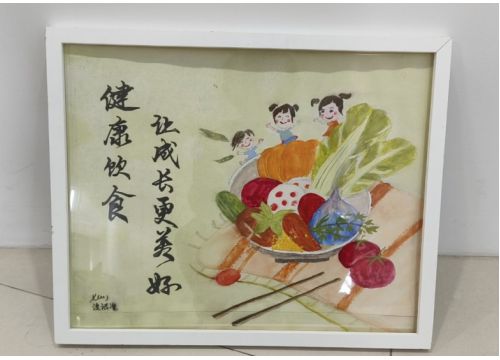 健康饮食
让成长更美好